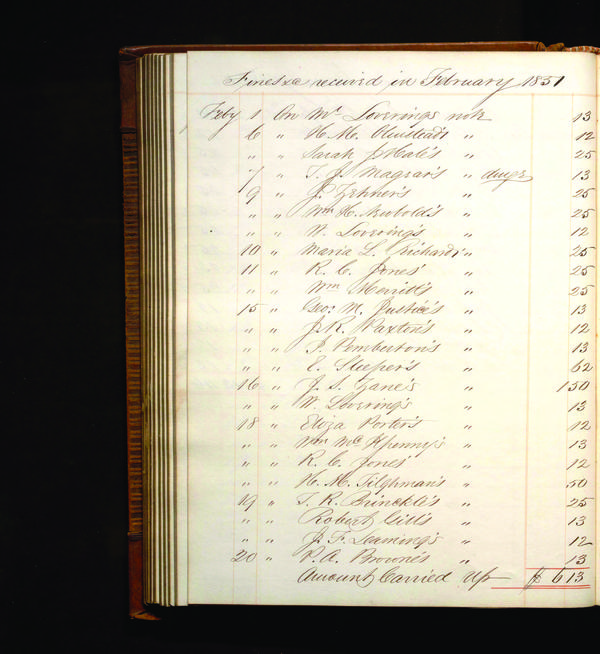 Fines &c received in February 1851
Feby 1 On Mr. Loverings note 13
6 " H. M. Olmstead's " 12
" " Sarah J Hale's " 25
7 " T. J. Magear's " 13
9 " J. Zehner's " 25
" " Wm H. Newbold's " 25
" " W. Lovering's " 12
10 " Maria L. Richards " 25
11 " R. C. Jones' " 25
" " Wm Merritt's " 25
15 " Geo: M. Justice's " 13
" " J. R. Paxton's " 12
" " J. Pemberton's " 13
" " E. Sleeper's " 62
16 " J. S. Zane's " 1 50
" " W. Lovering's 13
18 " Eliza Porter's " 12
" " Wm Mc Ilhenny's " 13
" " R. C. Jones' " 12
" " H. M. Tilghman's " 50
19 " T. R. Brinckle's " 25
" " Robert Gill's " 13
" " J. F. Leaming's " 12
20 " P. A. Browne's " 13
Amount Carried Up $ 6 13